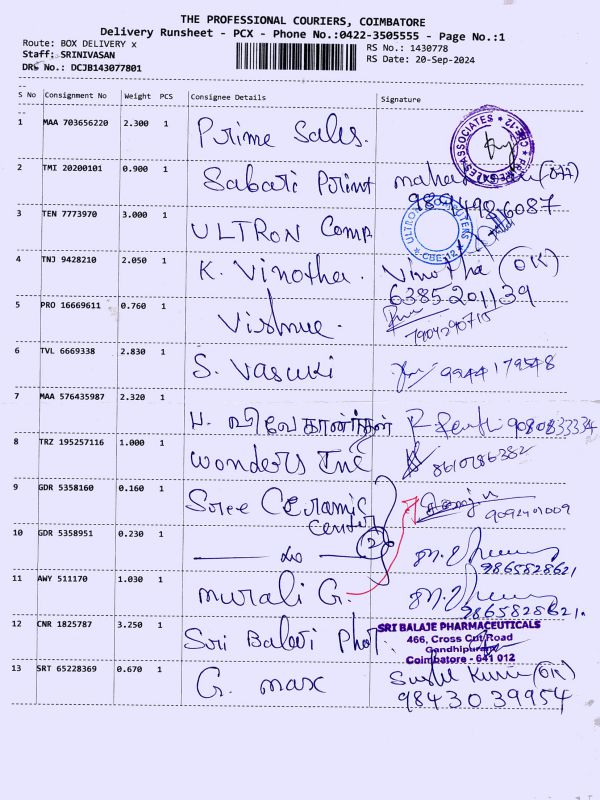 THE PROFESSIONAL COURIERS, COIMBATORE
Delivery Runsheet - PCX - Phone No.:0422-3505555 - Page No.:1
Route: BOX DELIVERY x
RS No.: 1430778
Staff: SRINIVASAN
RS Date: 20-Sep-2024
DRS No.: DCJB143077801
S No Consignment No Weight PCS Consignee Details Signature
1 MAA 703656220 2.300 1 Prime Sales.
ASSOCIATES * CBE-12 *
2 TMI 20200101 0.900 1 Sabari Print
9894986087
3 TEN 7773970 3.000 1 ULTRON Comp
ULTRON COMPUTERS * CBE-12 *
4 TNJ 9428210 2.050 1 K. Vinotha. Vinotha (OK)
6385201139
5 PRO 16669611 0.760 1 Vishnue.
7904290715
6 TVL 6669338 2.830 1 S. Vasuki 9944179548
7 MAA 576435987 2.320 1 9080833334
8 TRZ 195257116 1.000 1 Wonders Inc 8610786382
9 GDR 5358160 0.160 1 Sree Ceramic
Center
10 GDR 5358951 0.230 1 2
9865828621
11 AWY 511170 1.030 1 Murali G.
9865828621.
12 CNR 1825787 3.250 1 Sri Balaji
SRI BALAJE PHARMACEUTICALS
466, Cross Cut Road
Gandhipuram
Coimbatore - 641 012
13 SRT 65228369 0.670 1 G. max (OK)
9843039954